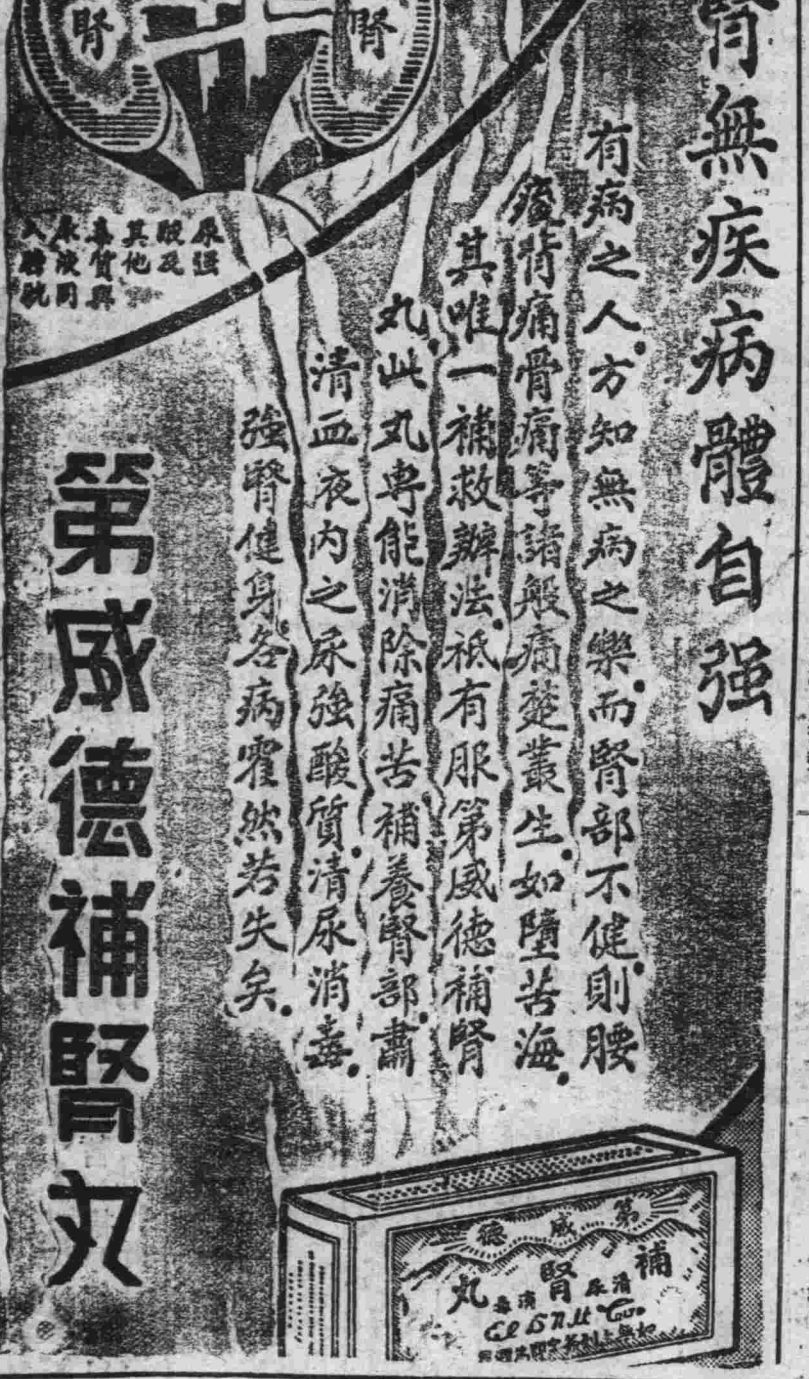 腎無疾病體自强
有病之人方知無病之樂而腎部不健則腰
痠背痛骨痛等諸般痛楚叢生如墮苦海
其唯一補救辦法祗有服第威德補腎
丸此丸專能消除痛苦補養腎部肅
清血液内之尿強酸質清尿消毒
強腎健身各病霍然若失矣
腎
腎
尿强
酸及
其他
毒質與
尿液同
入膀胱
第威德補腎丸
第威德
補腎丸
清尿消毒